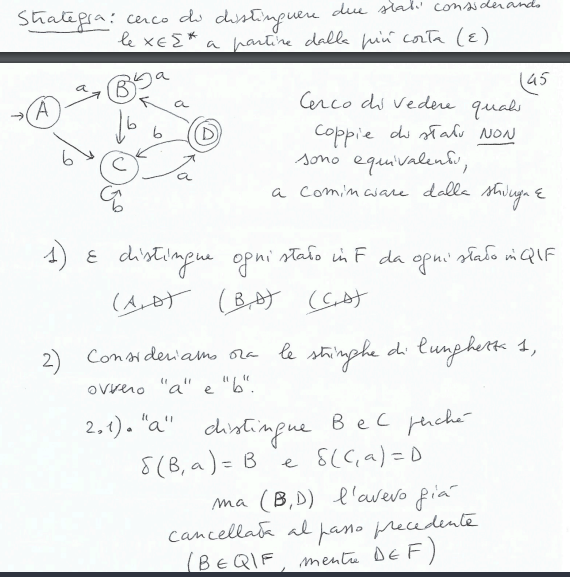 Strategia: cerco di distinguere due stati considerando
le x∈Σ* a partire dalla più corta (ε)
45
→ A a B a
b b a D
b C a
b
Cerco di vedere quali
coppie di stati NON
sono equivalenti,
a cominciare dalla stringa ε
1) ε distingue ogni stato in F da ogni stato in Q\F
(A,D) (B,D) (C,D)
2) Consideriamo ora le stringhe di lunghezza 1,
ovvero "a" e "b".
2.1). "a" distingue B e C perché
δ(B,a)=B e δ(C,a)=D
ma (B,D) l'avevo già
cancellata al passo precedente
(B∈Q\F, mentre D∈F)